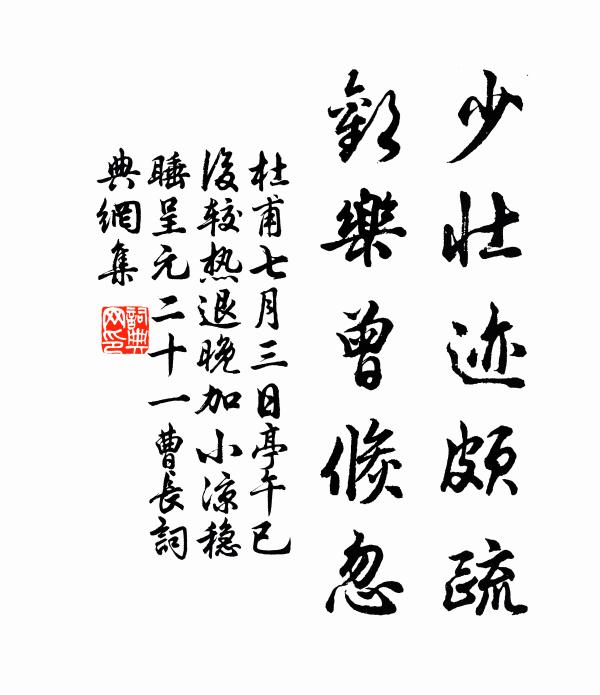 少壮迹頗疏
歡樂曾倏忽
杜甫七月三日亭午已
後较热退晚加小凉稳
睡呈元二十一曹长詞
典網集
詞典
网印